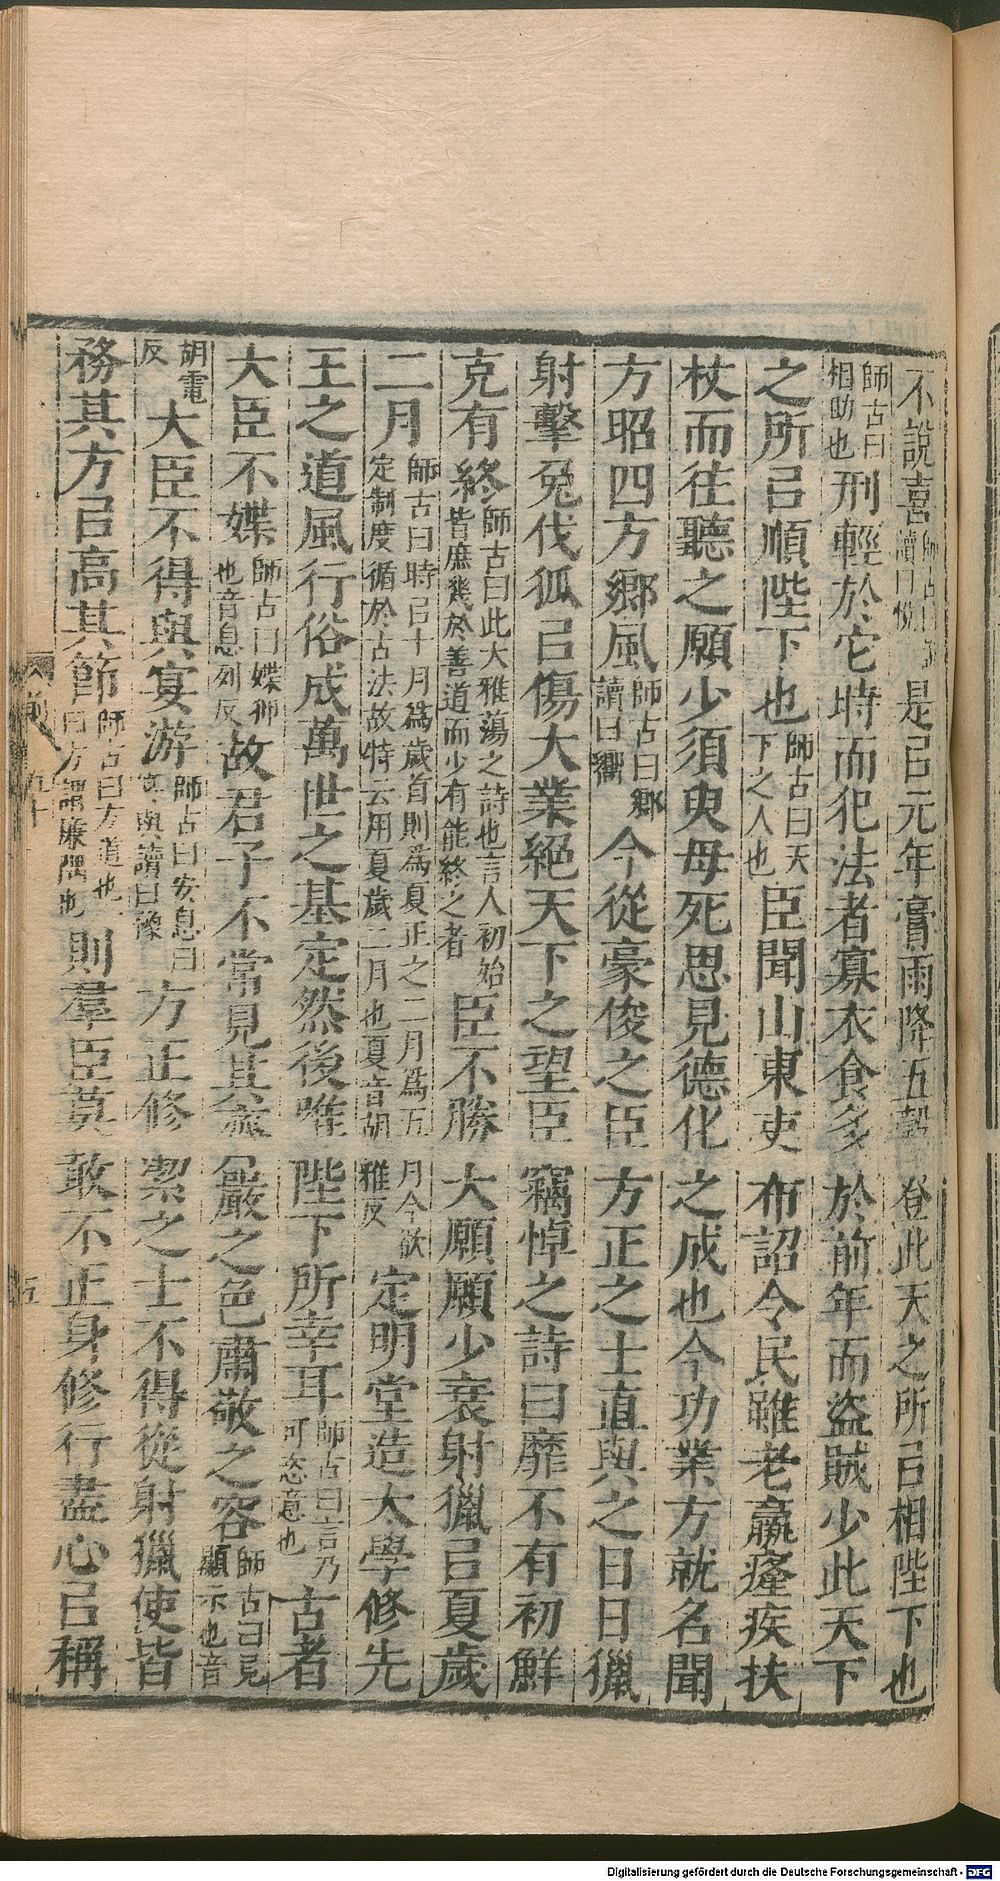 不說喜師古曰說讀曰悅是㠯元年膏雨降五穀登此天之所㠯相陛下也
師古曰相助也刑輕於它時而犯法者寡衣食多於前年而盜賊少此天下
之所㠯順陛下也師古曰天下之人也臣聞山東吏布詔令民雖老羸癃疾扶
杖而往聽之願少須臾毋死思見德化之成也今功業方就名聞
方昭四方鄉風師古曰鄉讀曰嚮今從豪俊之臣方正之士直與之日日獵
射擊兔伐狐㠯傷大業絕天下之望臣竊悼之詩曰靡不有初鮮
克有終師古曰此大雅蕩之詩也言人初始皆庶幾於善道而少有能終之者臣不勝大願願少衰射獵㠯夏歲
二月師古曰時㠯十月爲歲首則爲夏正之二月爲五月今欲定制度循於古法故特云用夏歲二月也夏音胡雅反定明堂造太學修先
王之道風行俗成萬世之基定然後唯陛下所幸耳師古曰言乃可恣意也古者
大臣不媟師古曰媟狎也音息列反故君子不常見其齊嚴之色肅敬之容師古曰見顯示也音
胡電反大臣不得與宴游師古曰安息曰宴與讀曰豫方正修絜之士不得從射獵使皆
務其方㠯高其節師古曰方道也一曰方謂廉隅也則羣臣莫敢不正身修行盡心㠯稱
五
Digitalisierung gefördert durch die Deutsche Forschungsgemeinschaft - DFG